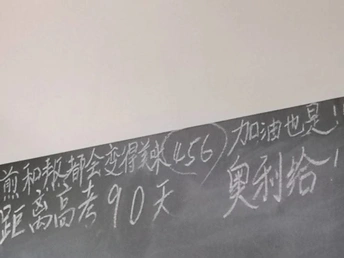 煎和熬都会变得美味(456) 加油也是!!
距离高考90天 奥利给!